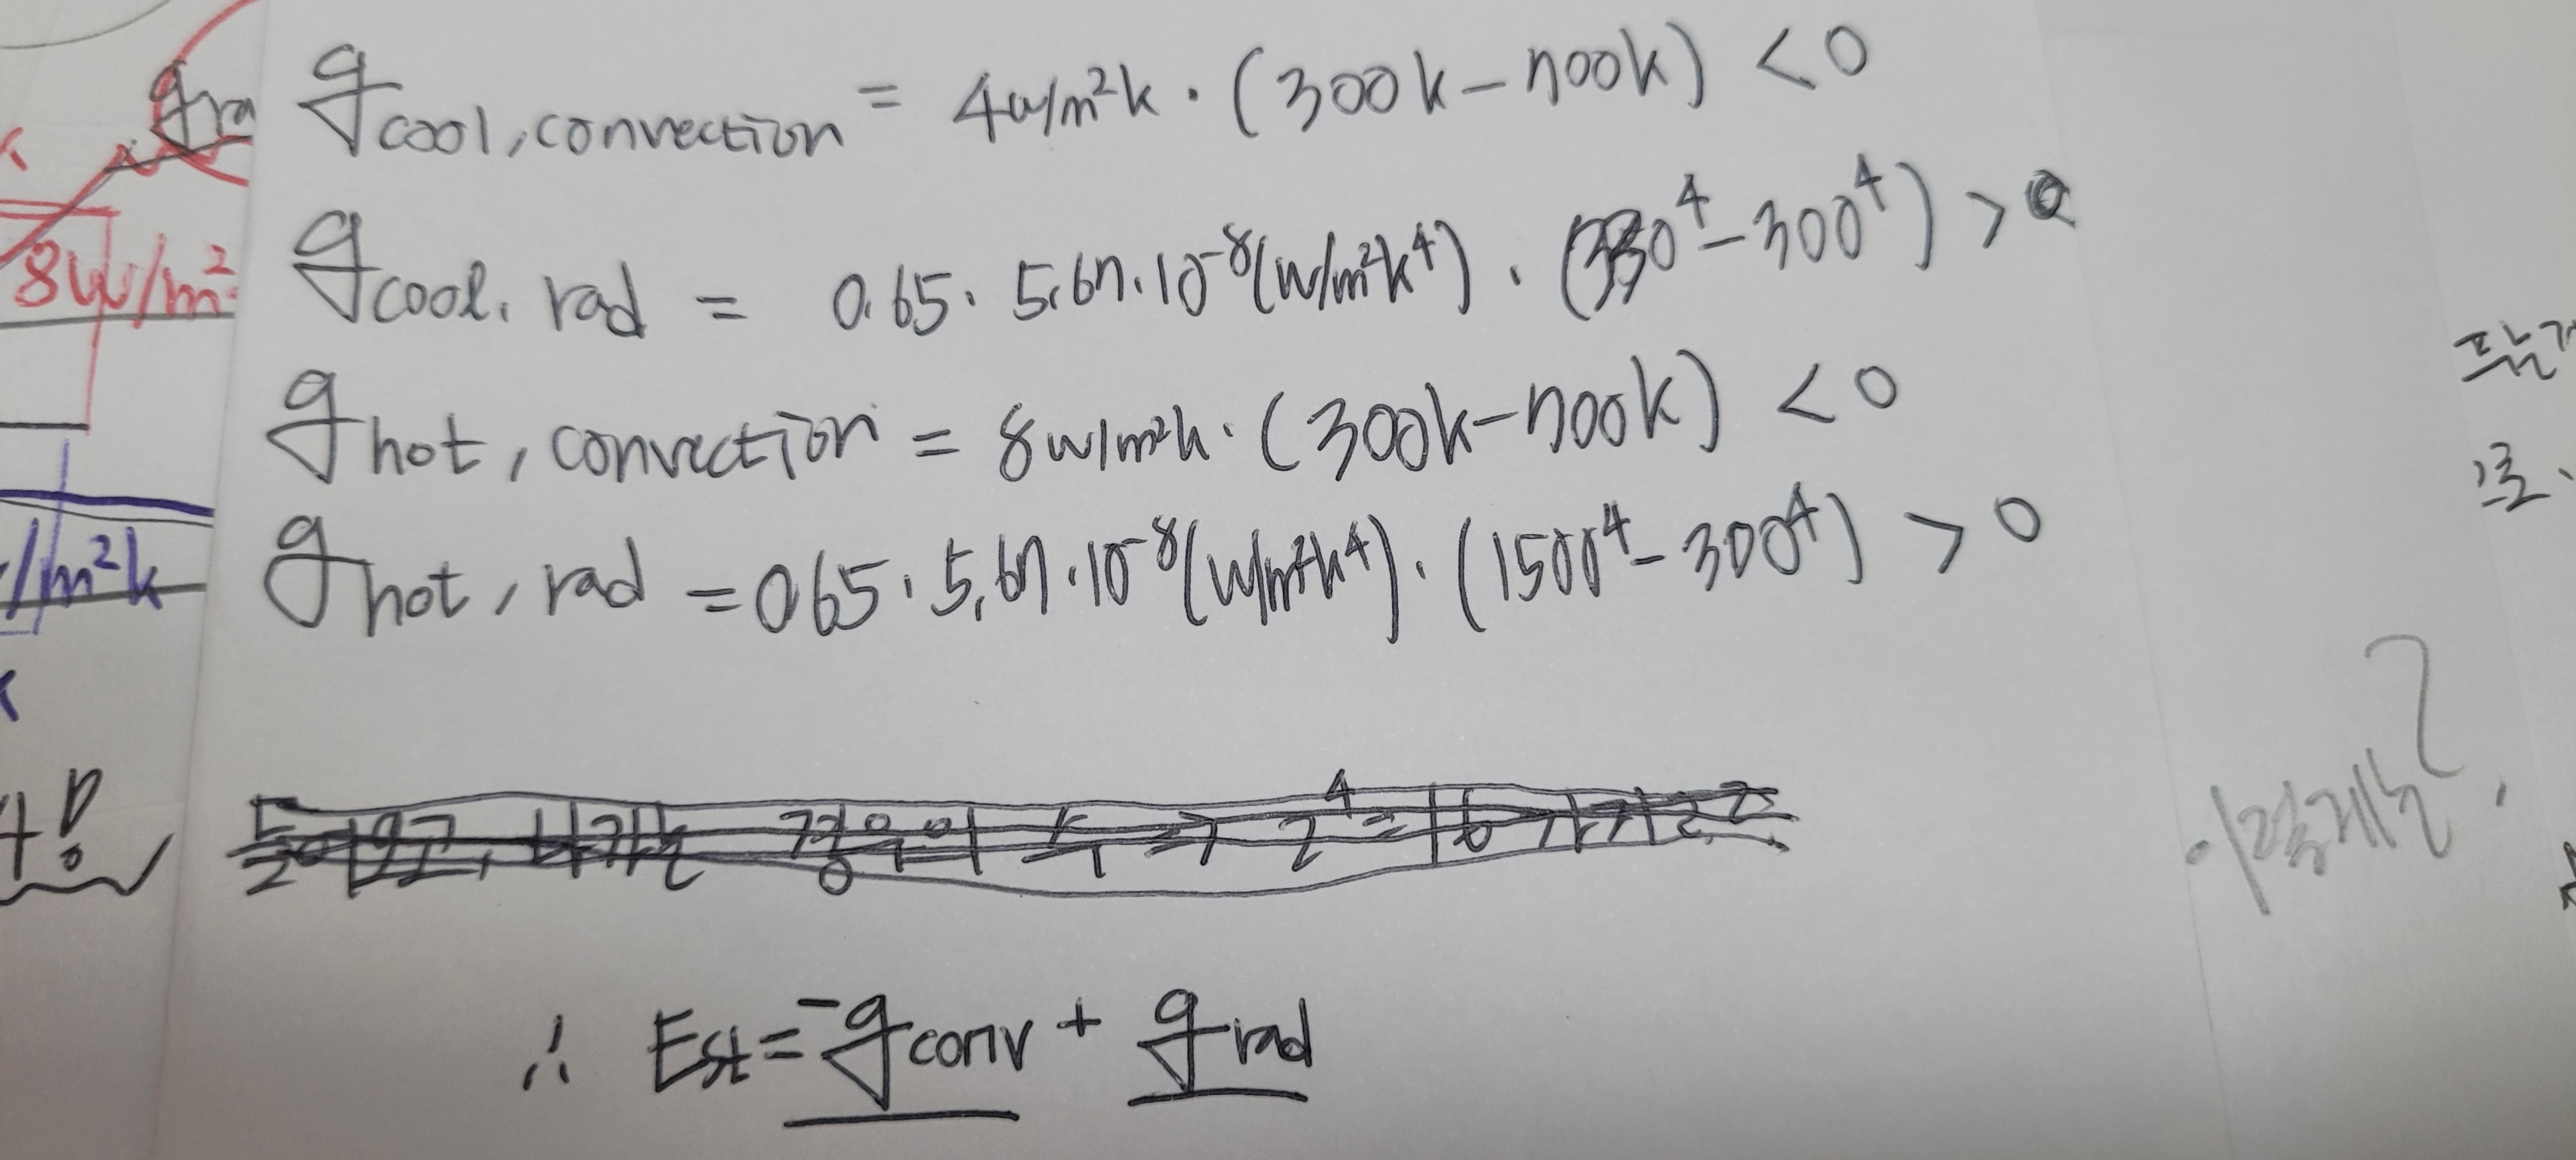 gra
q cool, convection = 4w/m²k · (300k - 700k) < 0
8W/m²
q cool, rad = 0.65 · 5.67 · 10⁻⁸(w/m²k⁴) · (330⁴ - 300⁴) > 0
q hot, convection = 8w/m²k · (300k - 700k) < 0
/m²k
q hot, rad = 0.65 · 5.67 · 10⁻⁸(w/m²k⁴) · (1500⁴ - 300⁴) > 0
∴ Est = -q conv + q rad